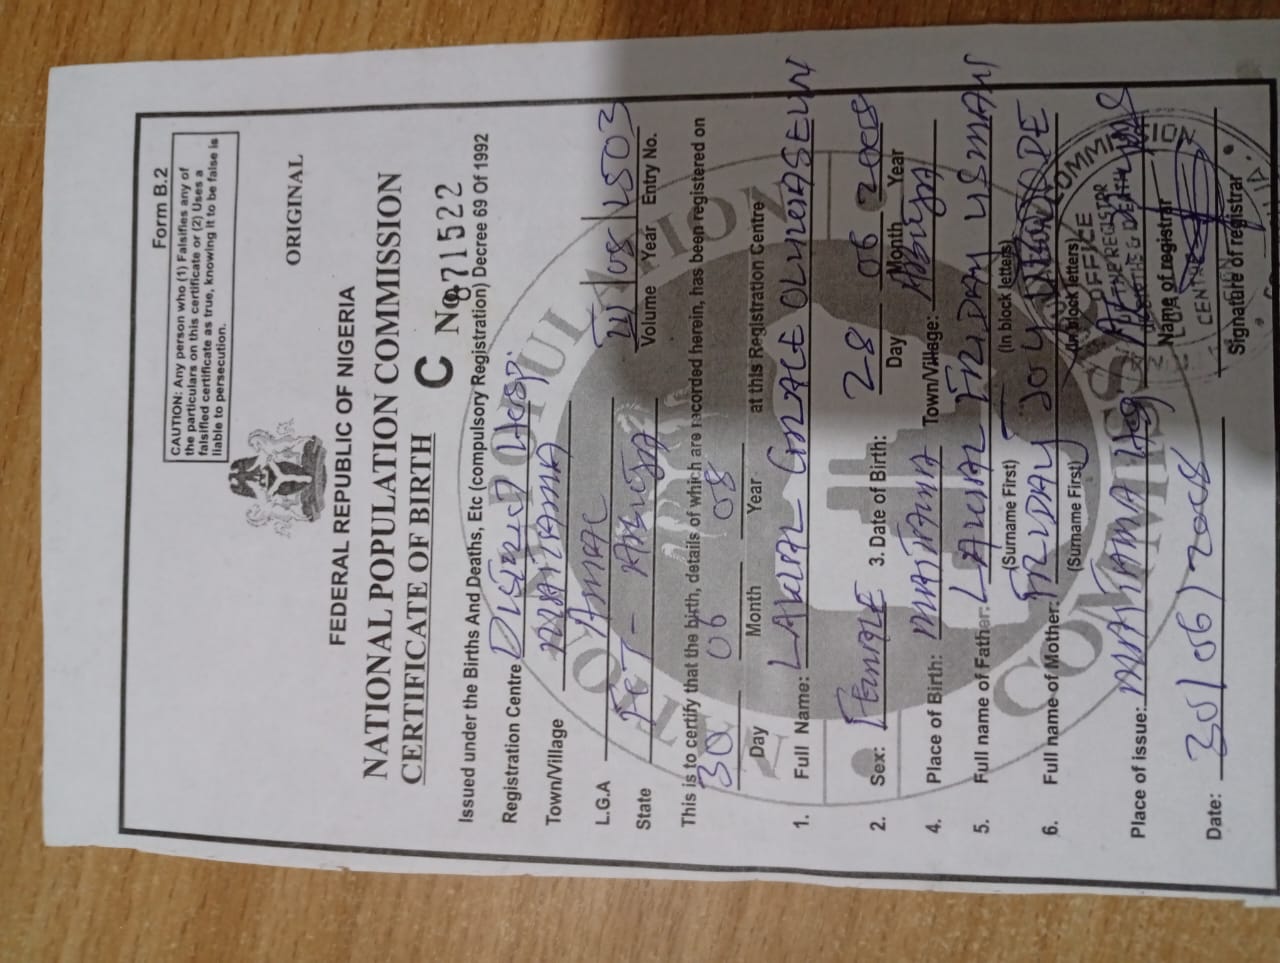 Form B.2
CAUTION: Any person who (1) Falsifies any of
the particulars on this certificate or (2) Uses a
falsified certificate as true, knowing it to be false is
liable to persecution.
ORIGINAL
FEDERAL REPUBLIC OF NIGERIA
NATIONAL POPULATION COMMISSION
CERTIFICATE OF BIRTH C No. 871522
Issued under the Births And Deaths, Etc (compulsory Registration) Decree 69 Of 1992
Registration Centre District Hosp.
Town/Village MAITAMA
L.G.A AMAC
State FCT - ABUJA IV/08/1503
Volume Year Entry No.
This is to certify that the birth, details of which are recorded herein, has been registered on
30 06 08
Day Month Year at this Registration Centre
1. Full Name: LAWAL GRACE OLUWASEUN
2. Sex: FEMALE 3. Date of Birth: 28 06 2008
Day Month Year
4. Place of Birth: MAITAMA Town/Village: Abuja
5. Full name of Father: LAWAL FRIDAY USMAN
(Surname First) (In block letters)
6. Full name of Mother: FRIDAY JOY
(Surname First) (In block letters)
Place of issue: MAITAMA
Name of registrar
Date: 30/06/2008
Signature of registrar
NATIONAL POPULATION COMMISSION
OFFICE
OF THE REGISTRAR
BIRTHS & DEATHS